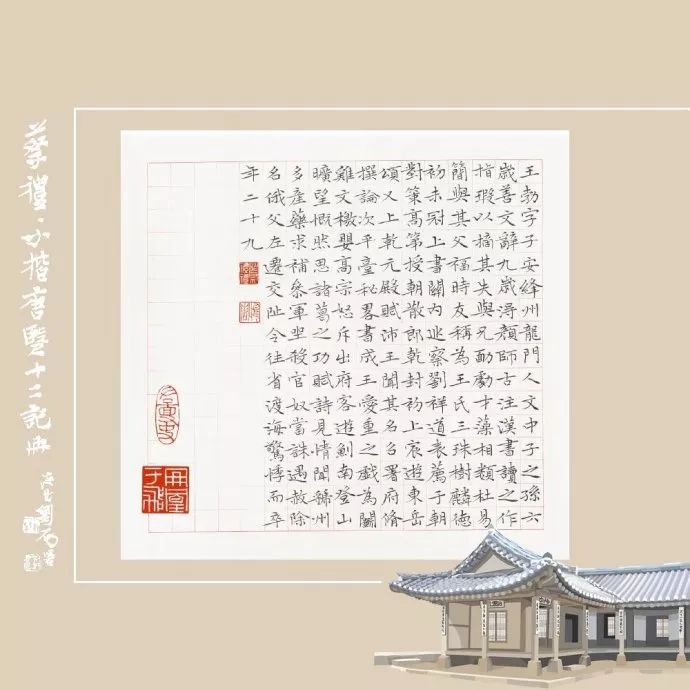 王勃字子安絳州龍門人文中子之孫六
歲善文辭九歲淂顏師古注漢書讀之作
指瑕以摘其失與兄勔勮才藻相類杜易
簡與其父福時友稱為王氏三珠樹麟德
初未冠上書闕內巡察劉祥道表薦于朝
對策高第授朝散郎乾封初上宸遊東岳
頌又上乾元殿賦沛王聞其名召署府脩
撰論次平臺秘畧書成王愛重之戲為鬭
雞文檄嬰高宗怒斥出府客遊劍南登山
曠望慨然思諸葛之功賦詩見情聞虢州
多產藥求補參軍坐殺官奴當誅遇赦除
名俄父左遷交阯令往省渡海驚悸而卒
年二十九
蔡禮·小楷唐賢十二記冊